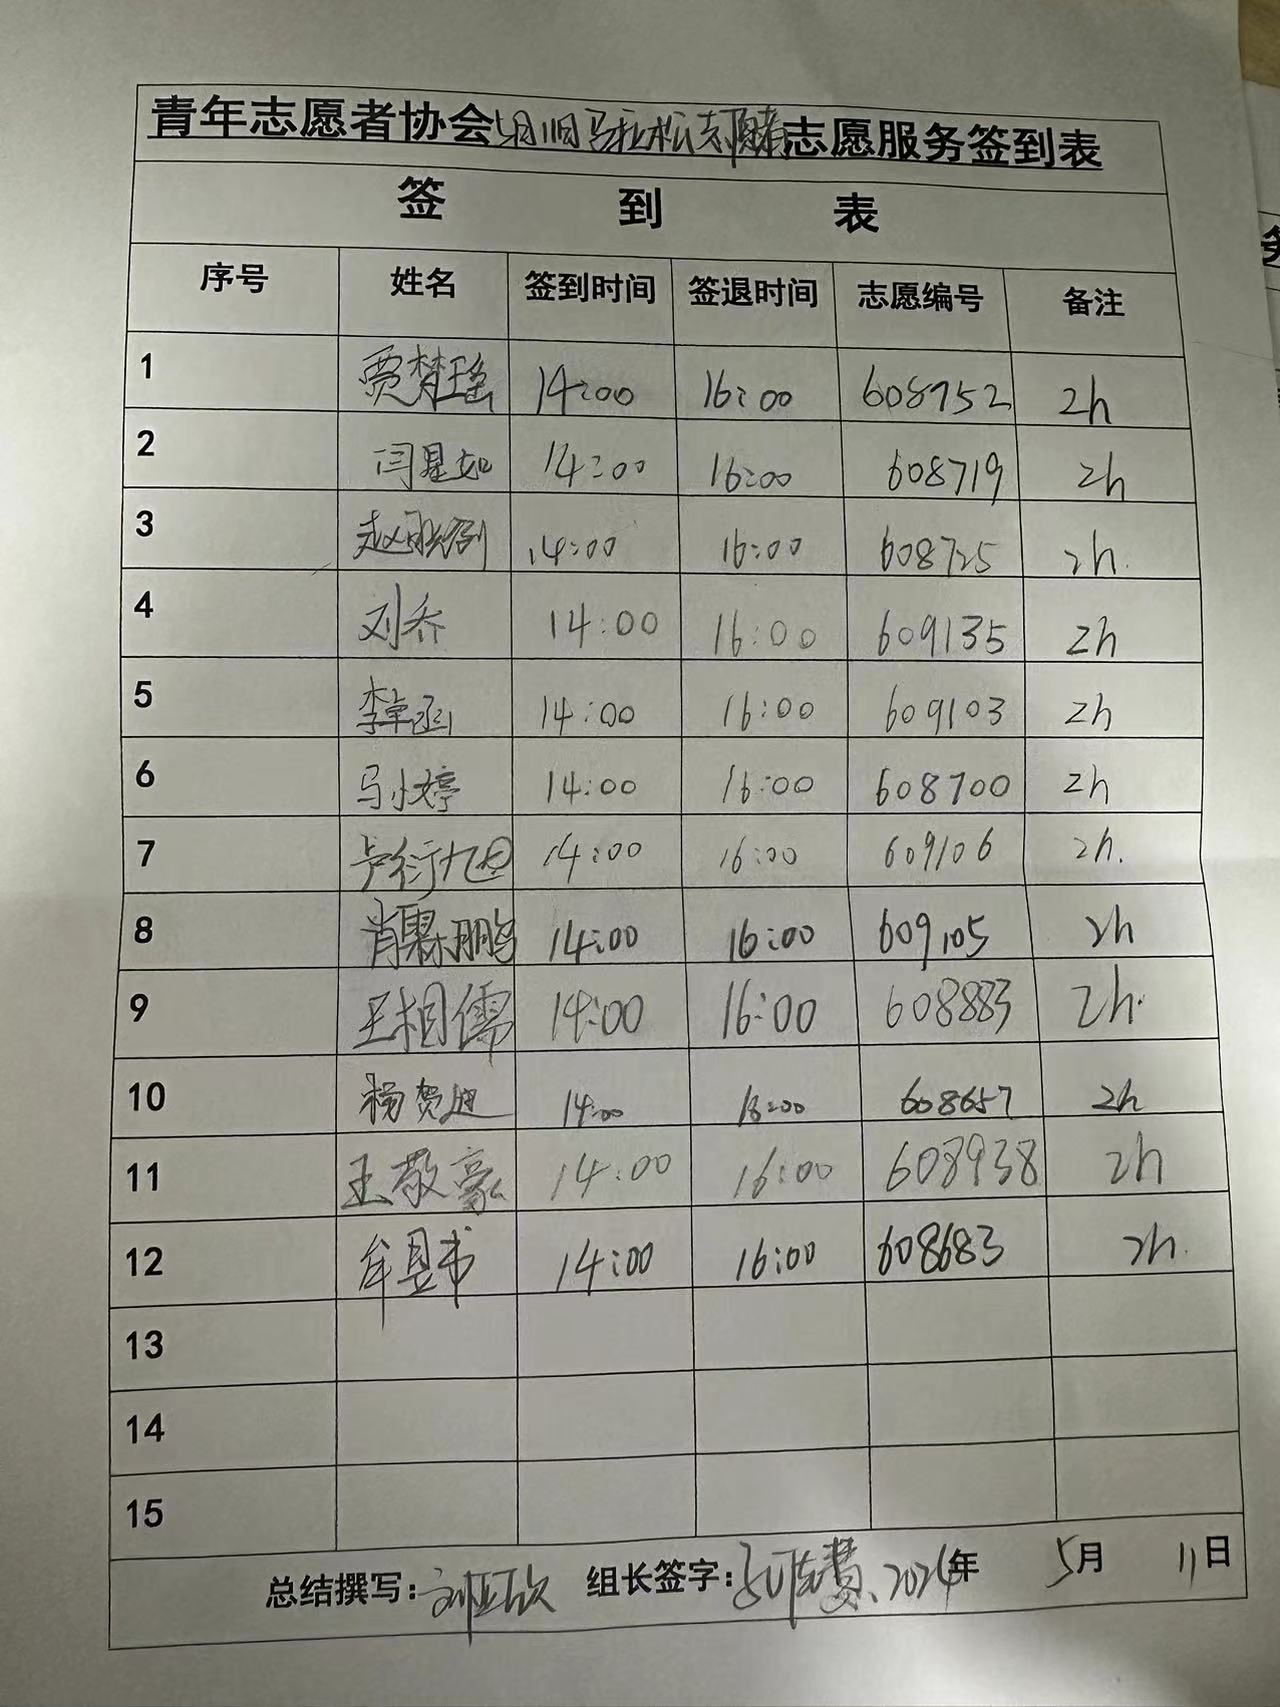 青年志愿者协会5月11日马拉松志愿者志愿服务签到表
签 到 表
序号 姓名 签到时间 签退时间 志愿编号 备注
1 贾梦瑶 14:00 16:00 608752 2h
2 闫星如 14:00 16:00 608719 2h
3 赵 14:00 16:00 608725 2h.
4 刘乔 14:00 16:00 609135 2h
5 李卓函 14:00 16:00 609103 2h
6 马小婷 14:00 16:00 608700 2h
7 卢衍 14:00 16:00 609106 2h.
8 肖霖鹏 14:00 16:00 609105 2h
9 王相儒 14:00 16:00 608883 2h.
10 杨贺迪 14:00 16:00 608657 2h
11 王敬豪 14:00 16:00 608938 2h
12 牟昱书 14:00 16:00 608683 2h.
13
14
15
总结撰写: 组长签字: 年 5月 11日
务